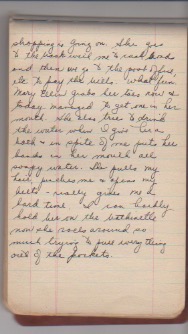 shopping is going on. She goes
to the bank with me to cash bonds
and then we go to the post office,
etc to pay the bills. What fun.
Mary Ellen grabs her toes now &
today managed to get one in her
mouth. She also tries to drink
the water when I give her a
bath - in spite of me puts her
hands in her mouth all
soapy water. She pulls my
hair, pinches me & opens my
belts - really gives me a
hard time. I can hardly
hold her on the bathinette
now she rolls around so
much trying to pull everything
out of the pockets.